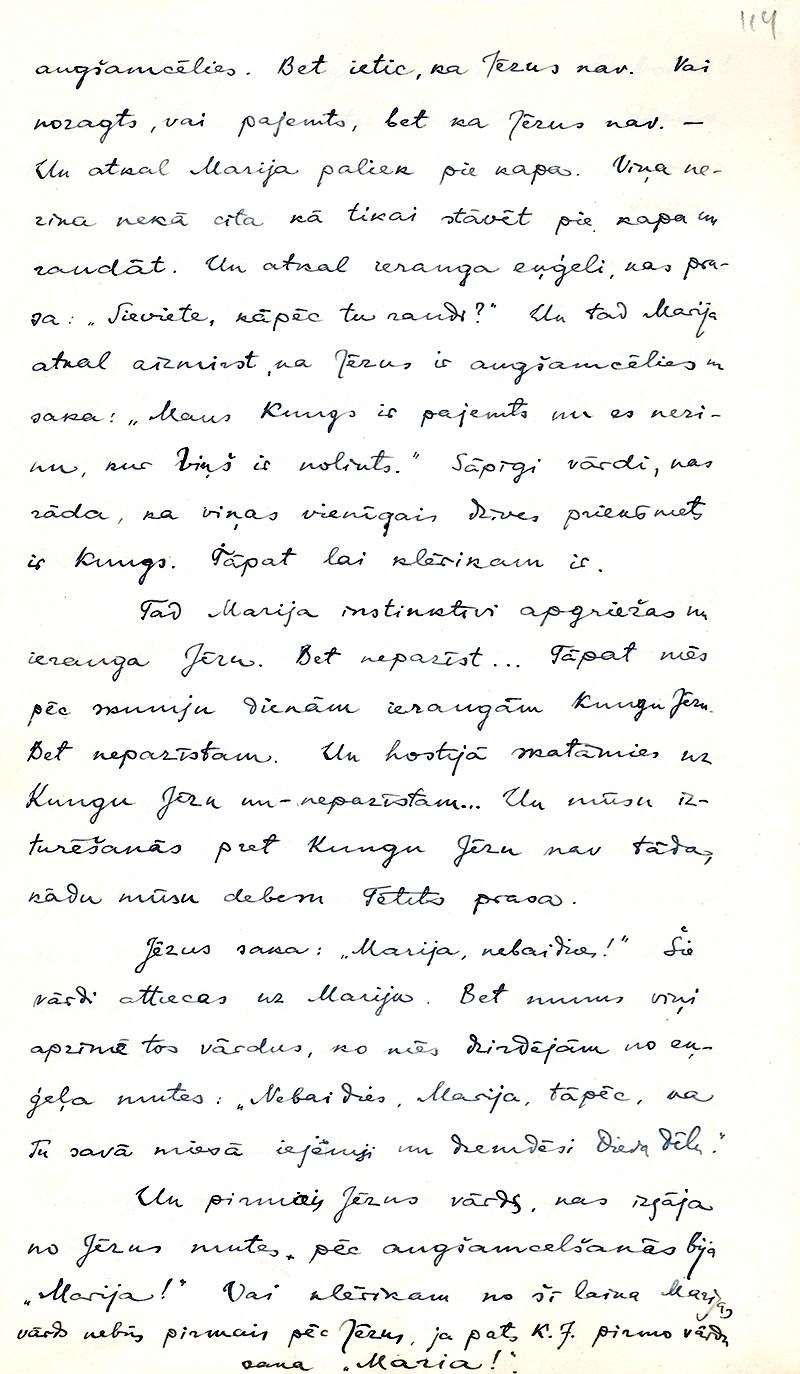 114
augšamcēlies. Bet ietic, ka Jēzus nav. Vai
nozagts, vai pajemts, bet ka Jēzus nav. —
Un atkal Marija paliek pie kapa. Viņa ne-
zina nekā cita kā tikai stāvēt pie kapa un
raudāt. Un atkal ierauga eņģeli, kas pra-
sa: „Sieviete, kāpēc tu raudi?" Un tad Marija
atkal aizmirst, ka Jēzus ir augšamcēlies un
saka: „Mans Kungs ir pajemts un es nezi-
nu, kur Viņš ir nolikts." Sāpīgi vārdi, kas
rāda, ka viņas vienīgais dzīves priekšmets
ir Kungs. Tāpat lai klērikam ir.
Tad Marija instinktīvi apgriežas un
ierauga Jēzu. Bet nepazīst... Tāpat mēs
pēc skumju dienām ieraugām Kungu Jēzu.
Bet nepazīstam. Un hostijā skatāmies uz
Kungu Jēzu un-nepazīstam... Un mūsu iz-
turēšanās pret Kungu Jēzu nav tāda,
kādu mūsu debesu Tētīts prasa.
Jēzus saka: „Marija, nebaidies!" Šie
vārdi attiecas uz Mariju. Bet mums viņi
apzīmē tos vārdus, ko mēs dzirdējām no eņ-
ģeļa mutes: „Nebaidies, Marija, tāpēc, ka
Tu savā miesā ieņēmsi un dzemdēsi Dieva dēlu."
Un pirmais Jēzus vārds, kas izgāja
no Jēzus mutes, pēc augšamcelšanās bija
„Marija!" Vai klērikam no šī laika Marijas
vārds nebūs pirmais pēc Jēzus, ja pats K.J. pirmo vārdu
saka „Maria!".